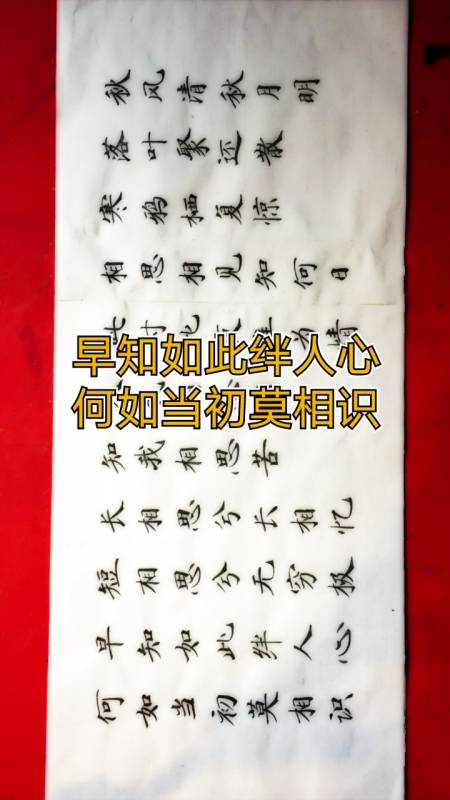 秋风清秋月明
落叶聚还散
寒鸦栖复惊
相思相见知何日
情
早知如此绊人心
何如当初莫相识
知我相思苦
长相思兮长相忆
短相思兮无穷极
早知如此绊人心
何如当初莫相识